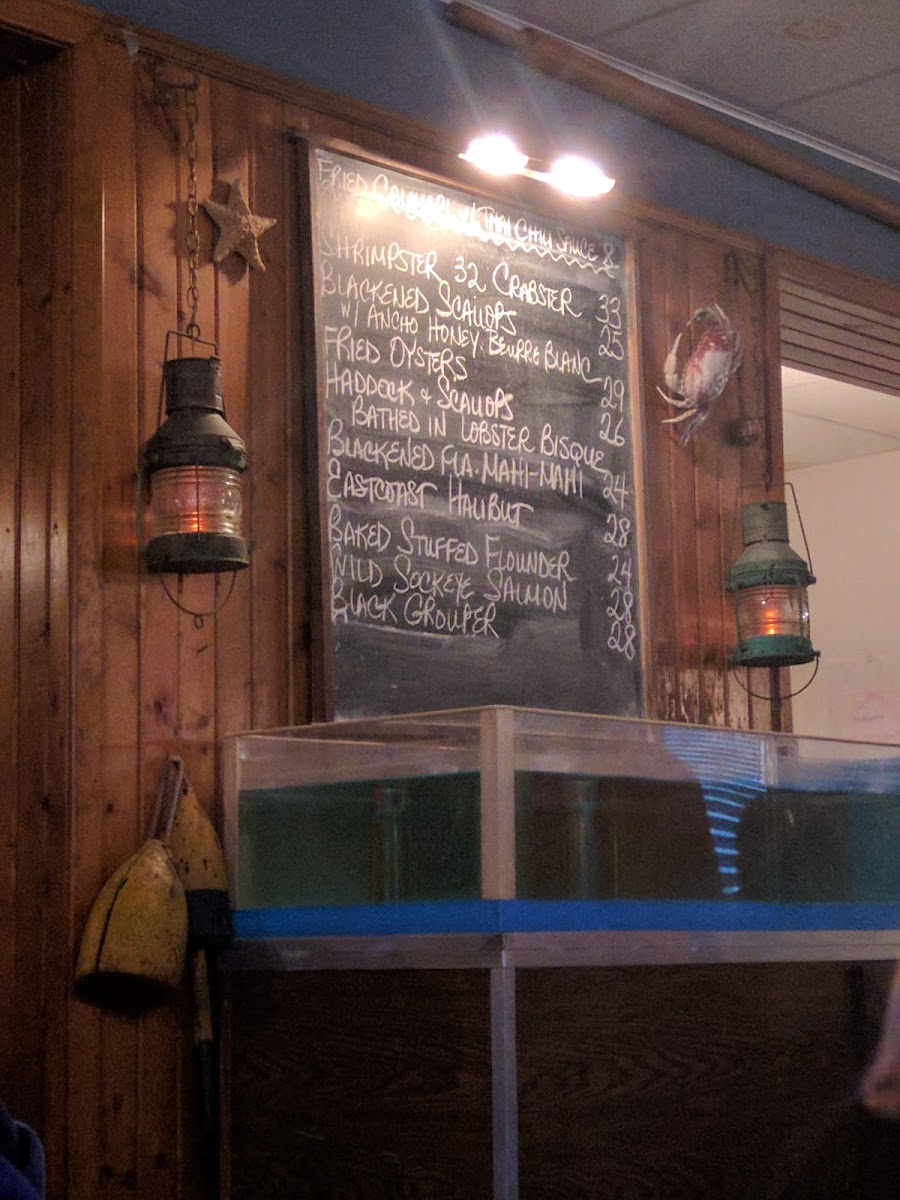 FRIED CALAMARI W/ THAI CHILI SAUCE 8
SHRIMPSTER 32 CRABSTER 33
BLACKENED SCALLOPS 25
W/ ANCHO HONEY BEURRE BLANC
FRIED OYSTERS 29
HADDOCK & SCALLOPS 26
BATHED IN LOBSTER BISQUE
BLACKENED FLA. MAHI-MAHI 24
EASTCOAST HALIBUT 28
BAKED STUFFED FLOUNDER 24
WILD SOCKEYE SALMON 28
BLACK GROUPER 28